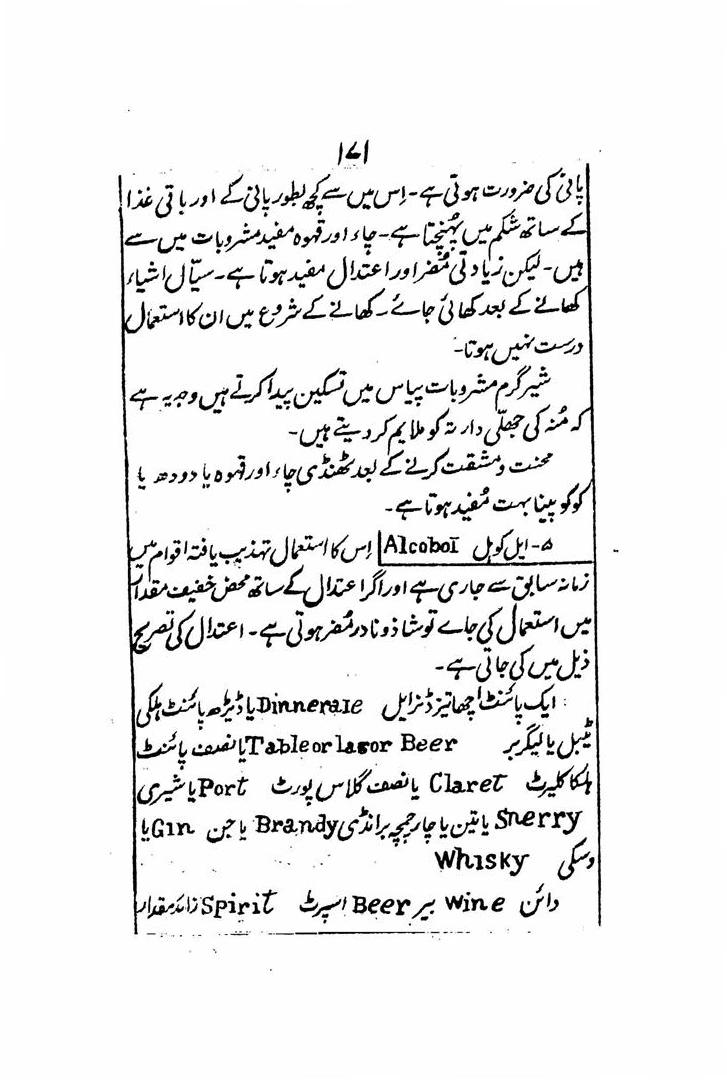 ۱۷۱
پانی کی ضرورت ہوتی ہے۔ اِس میں سے کچھ بطور پانی کے اور باقی غذا
کے ساتھ شکم میں پہُنچتا ہے۔ چاء اور قہوہ مفید مشروبات میں سے
ہیں۔ لیکن زیادتی مُضر اور اعتدال مفید ہوتا ہے۔ سیّال اشیاء
کھانے کے بعد کھائی جائے۔ کھانے کے شروع میں ان کا استعمال
درست نہیں ہوتا۔
شیر گرم مشروبات پیاس میں تسکین پیدا کرتے ہیں وجہ یہ ہے
کہ مُنہ کی جھلّی دار تہ کو ملایم کر دیتے ہیں۔
محنت و مشقت کرنے کے بعد ٹھنڈی چاء اور قہوہ یا دودھ یا
کوکو پینا بہت مُفید ہوتا ہے۔
۵۔ ایل کوہل Alcobol اِس کا استعمال تہذیب یافتہ اقوام میں
زمانہ سابق سے جاری ہے اور اگر اعتدال کے ساتھ محض خفیف مقدار
میں استعمال کی جاے تو شاذ و نادر مُضر ہوتی ہے۔ اعتدال کی تصریح
ذیل میں کی جاتی ہے۔
ایک پائنٹ اچھا تیز ڈنرایل Dinnerale یا ڈیڑھ پائنٹ ہلکی
ٹیبل یا لیگر بر Table or lagor Beer یا نصف پائنٹ
ہلکا کلیرٹ Claret یا نصف گلاس پورٹ Port یا شیری
Sherry یا تین یا چار چمچہ برانڈی Brandy یا جن Gin یا
وسکی Whisky
وائن Wine بیر Beer اسپرٹ Spirit زائد مقدار